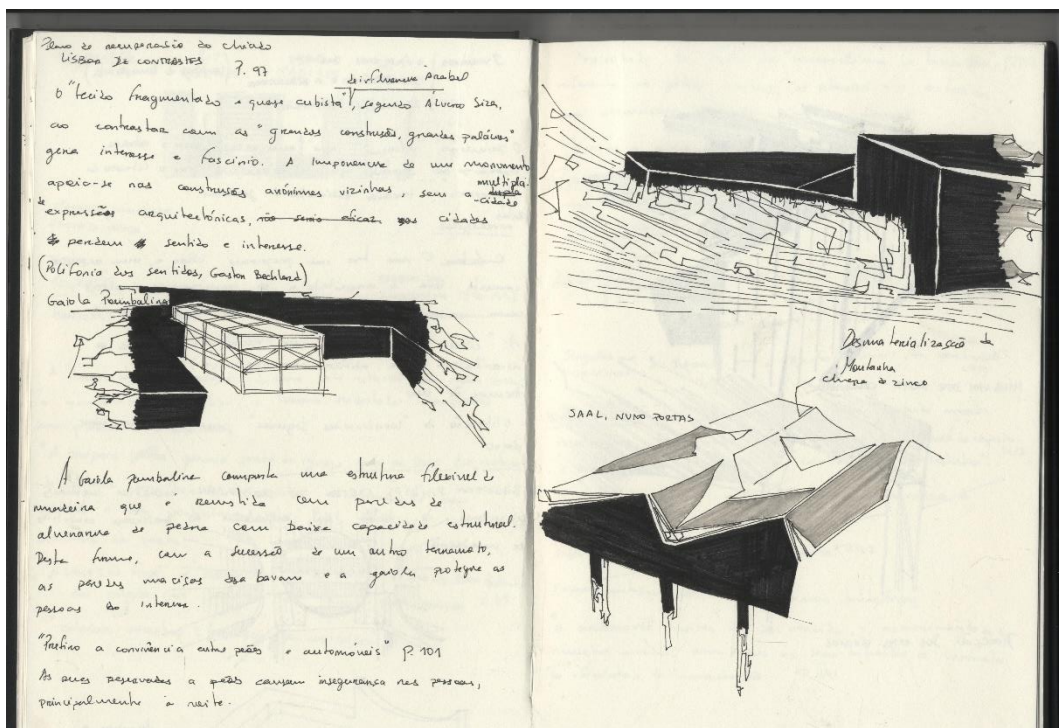 Plano de recuperação do chiado
LISBOA DE CONTRASTES
P. 97
de influencia Árabe
O "tecido fragmentado e quase cubista", segundo Álvaro Siza,
ao contrastar com as "grandes construções, grandes palácios"
gera interesse e fascinio. A imponencia de um monumento
apoia-se nas construções anónimas vizinhas, sem a multipla-
-cidade
de expressões arquitetónicas, não seria eficaz as cidades
perdem sentido e interesse.
(Polifonia dos sentidos, Gaston Bachlard)
Gaiola Pombalina
A Gaiola pombalina comporta uma estrutura flexivel de
madeira que é revestida com paredes de
alvenaria de pedra com baixa capacidade estrutural.
Desta forma, com a sucessão de um outro terramoto,
as paredes maciças desabavam e a gaiola protegia as
pessoas no interior.
"Prefiro a convivência entre peões e automóveis" P. 101
As ruas reservadas a peões causam insegurança nas pessoas,
principalmente à noite.
Desmaterialização da
Montanha
chapa de zinco
SAAL, NUNO PORTAS